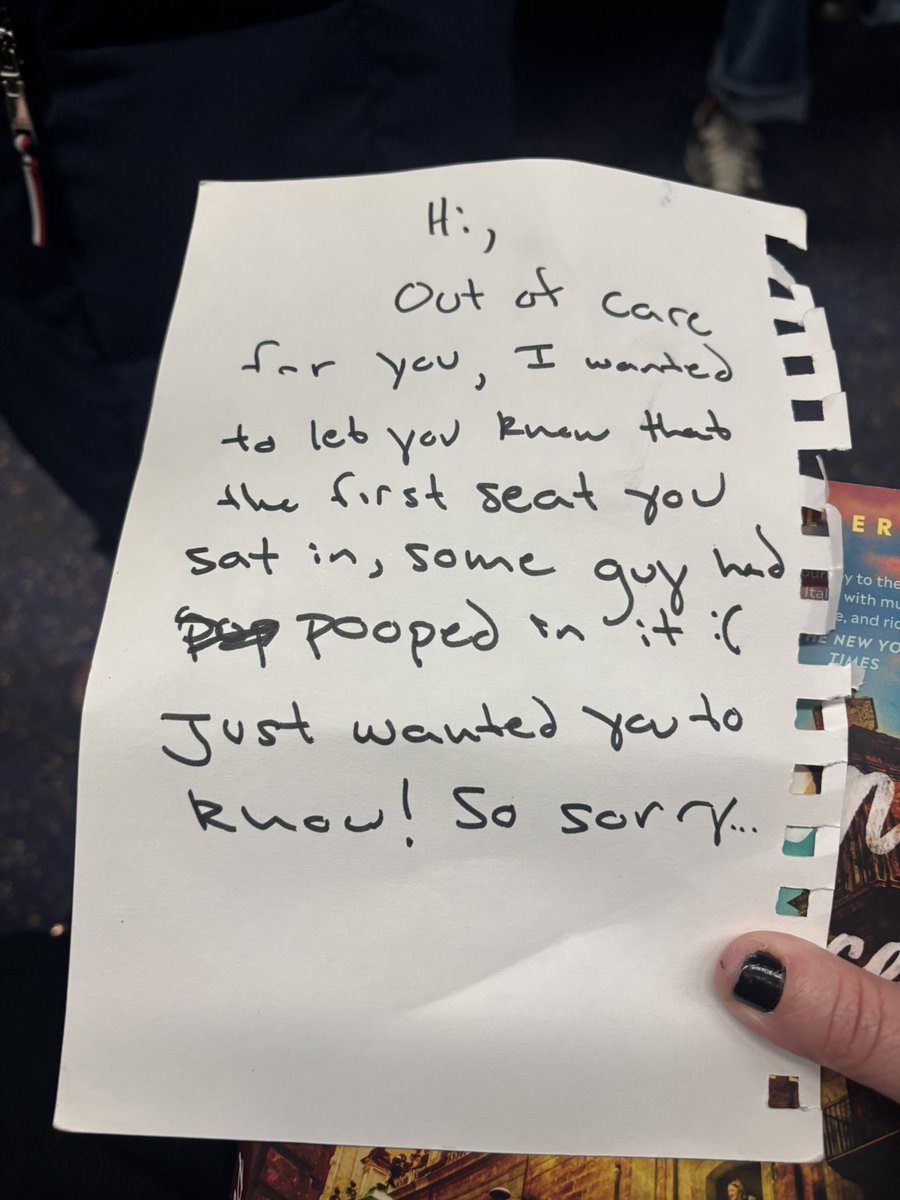 Hi,
Out of care
for you, I wanted
to let you know that
the first seat you
sat in, some guy had
pooped in it :(
Just wanted you to
know! So sorry...
ER
y to the
Ital
with mu
e, and ric
THE NEW YO
TIMES